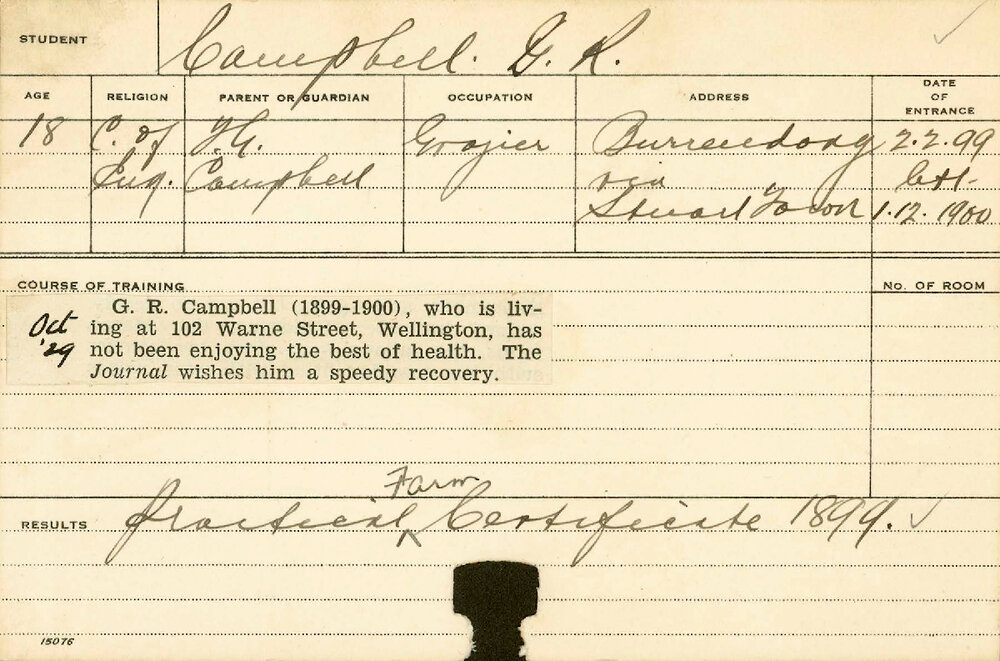 STUDENT Campbell. G. R.
AGE RELIGION PARENT OR GUARDIAN OCCUPATION ADDRESS DATE OF ENTRANCE
18 C. of Grazier Burrendong 2.2.99
Eng. Campbell via left-
Stuart Town 1.12.1900
COURSE OF TRAINING No. OF ROOM
G. R. Campbell (1899-1900), who is liv-
Oct ing at 102 Warne Street, Wellington, has
'29 not been enjoying the best of health. The
Journal wishes him a speedy recovery.
Farm
RESULTS Practical ‸ Certificate 1899.
15076